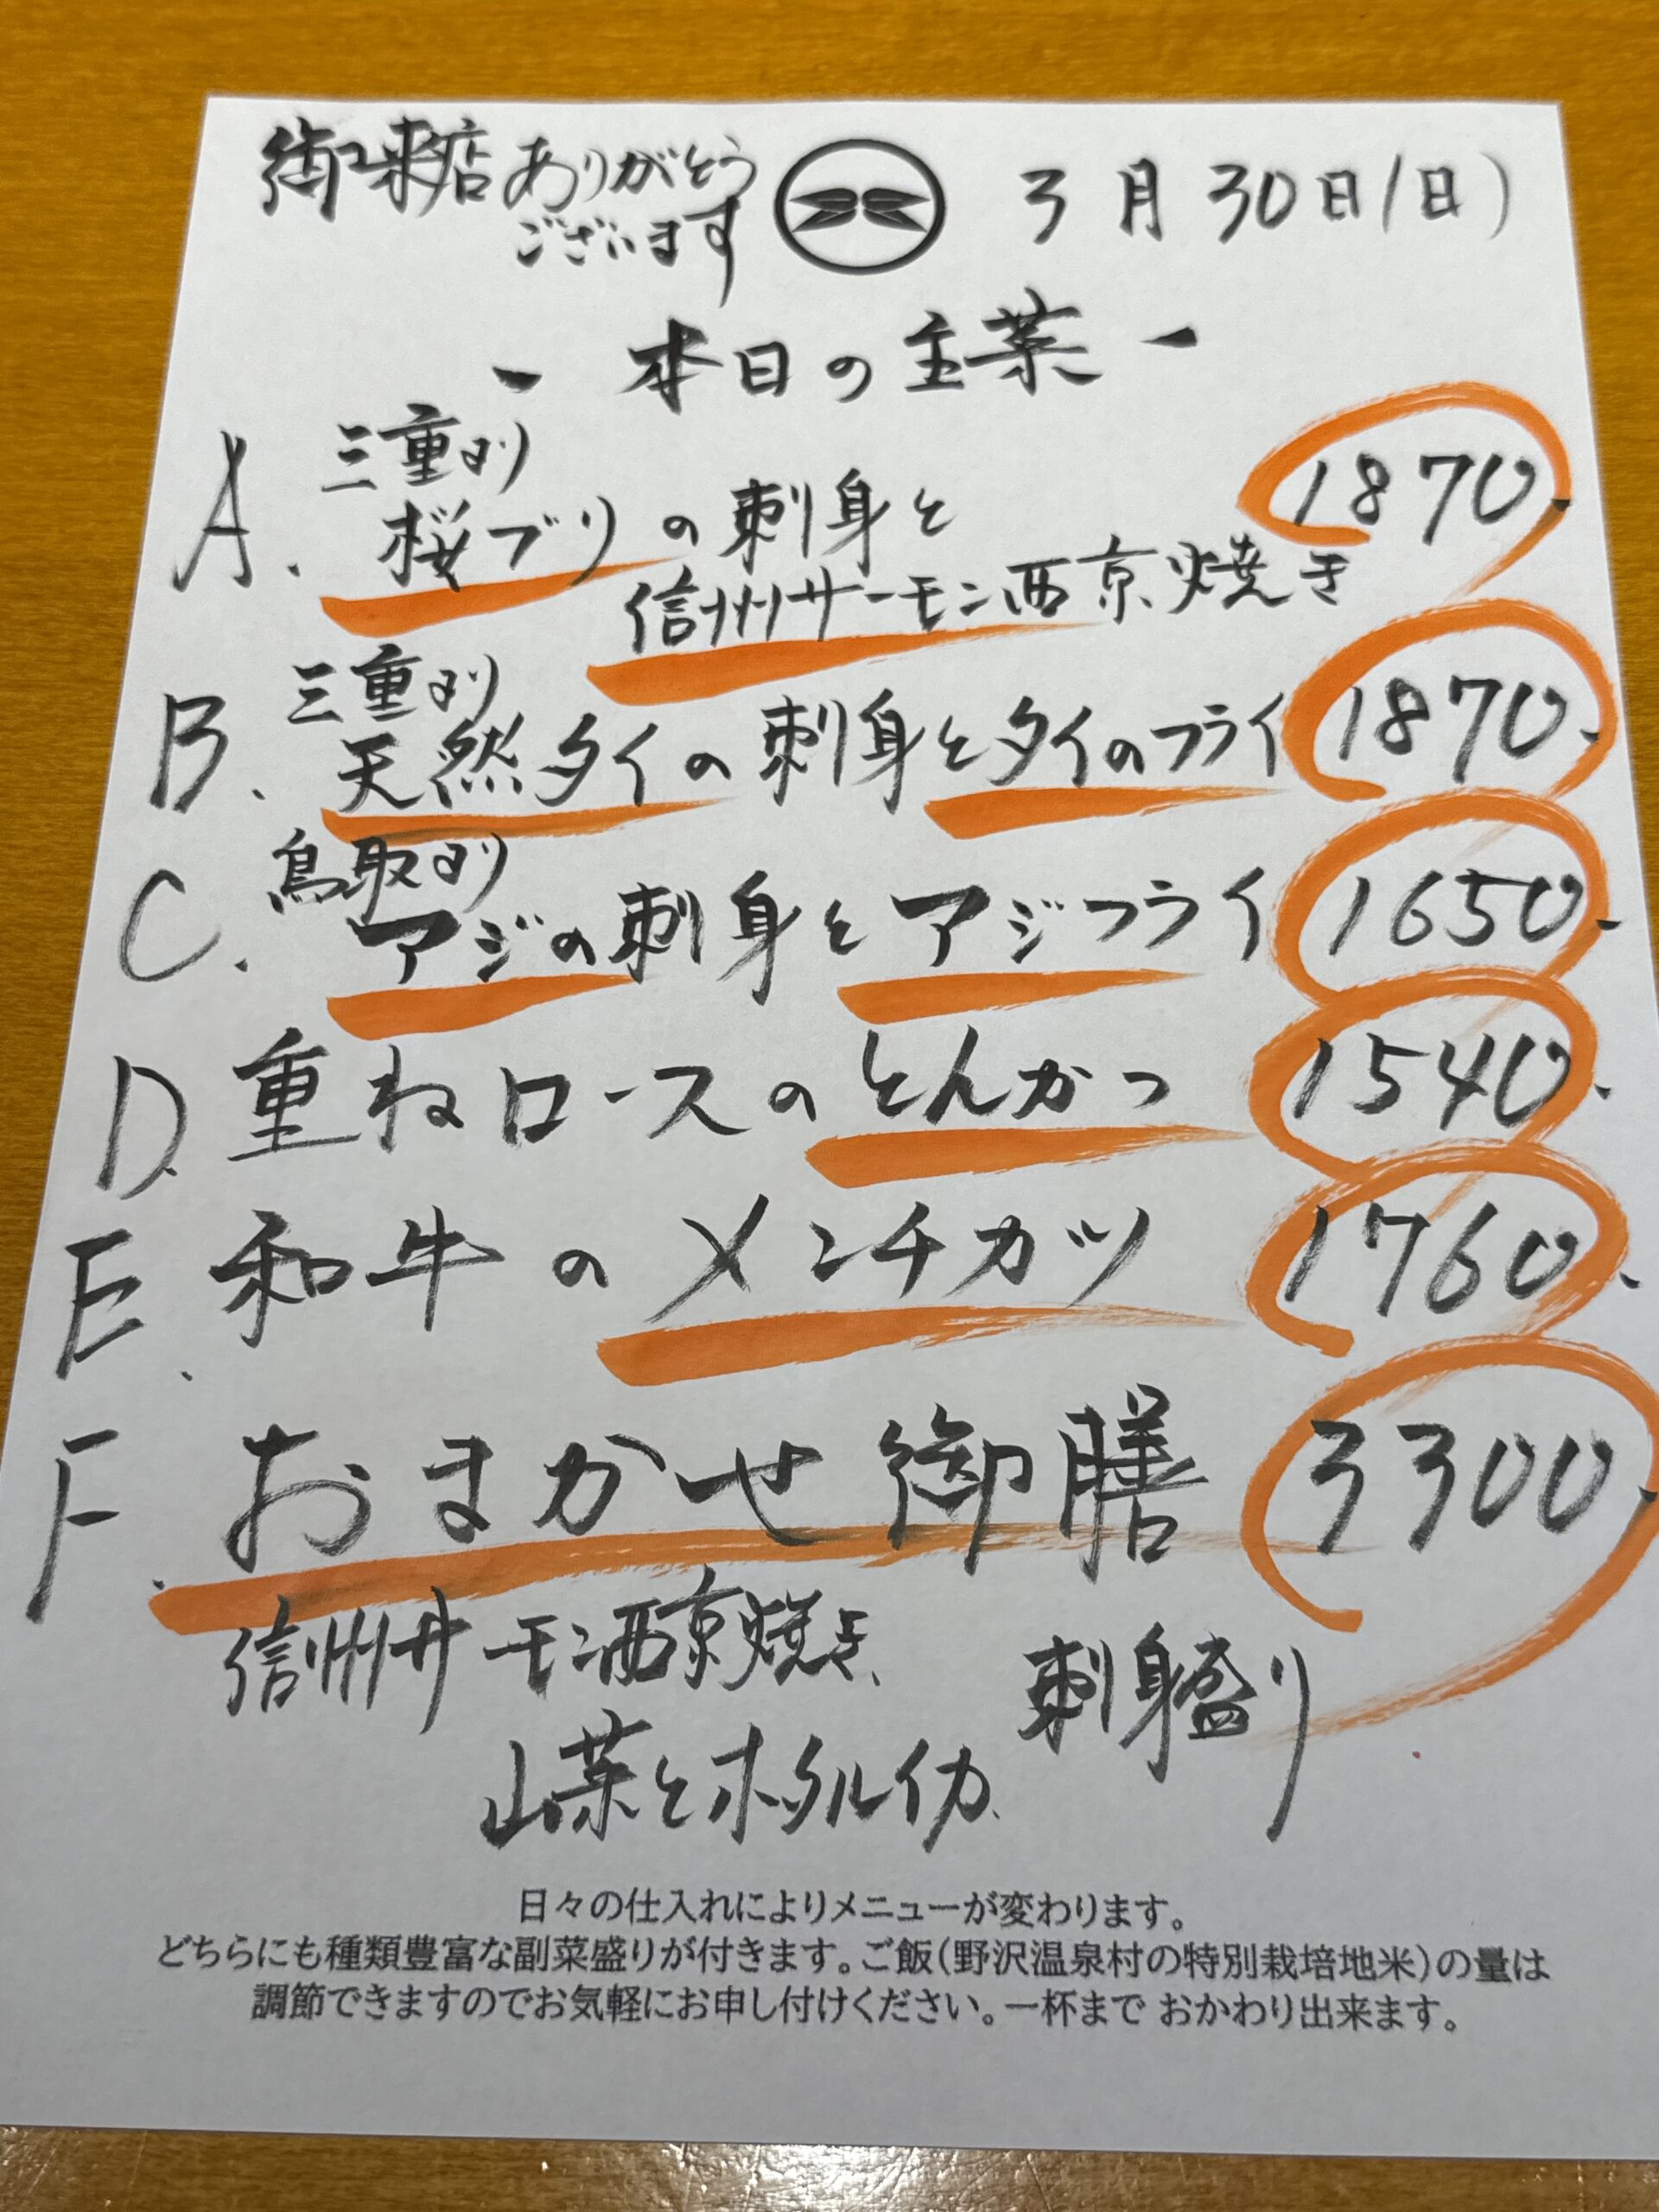 御来店ありがとう
ございます
3月30日(日)
- 本日の主菜 -
A. 三重より
桜ブリの刺身と
信州サーモン西京焼き
1870.
B. 三重より
天然タイの刺身とタイのフライ 1870.
C. 鳥取より
アジの刺身とアジフライ 1650.
D. 重ねロースのとんかつ 1540.
E. 和牛のメンチカツ 1760.
F. おまかせ御膳 3300.
信州サーモン西京焼き、
刺身盛り
山菜とホタルイカ、
日々の仕入れによりメニューが変わります。
どちらにも種類豊富な副菜盛りが付きます。ご飯(野沢温泉村の特別栽培地米)の量は
調節できますのでお気軽にお申し付けください。一杯まで おかわり出来ます。